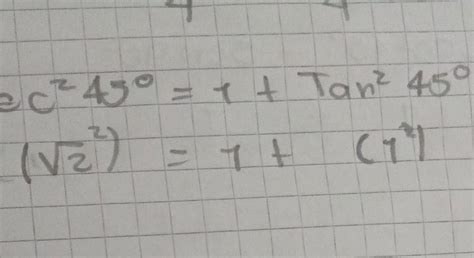 ec² 45° = 1 + Tan² 45°
(√2²) = 1 + (1²)